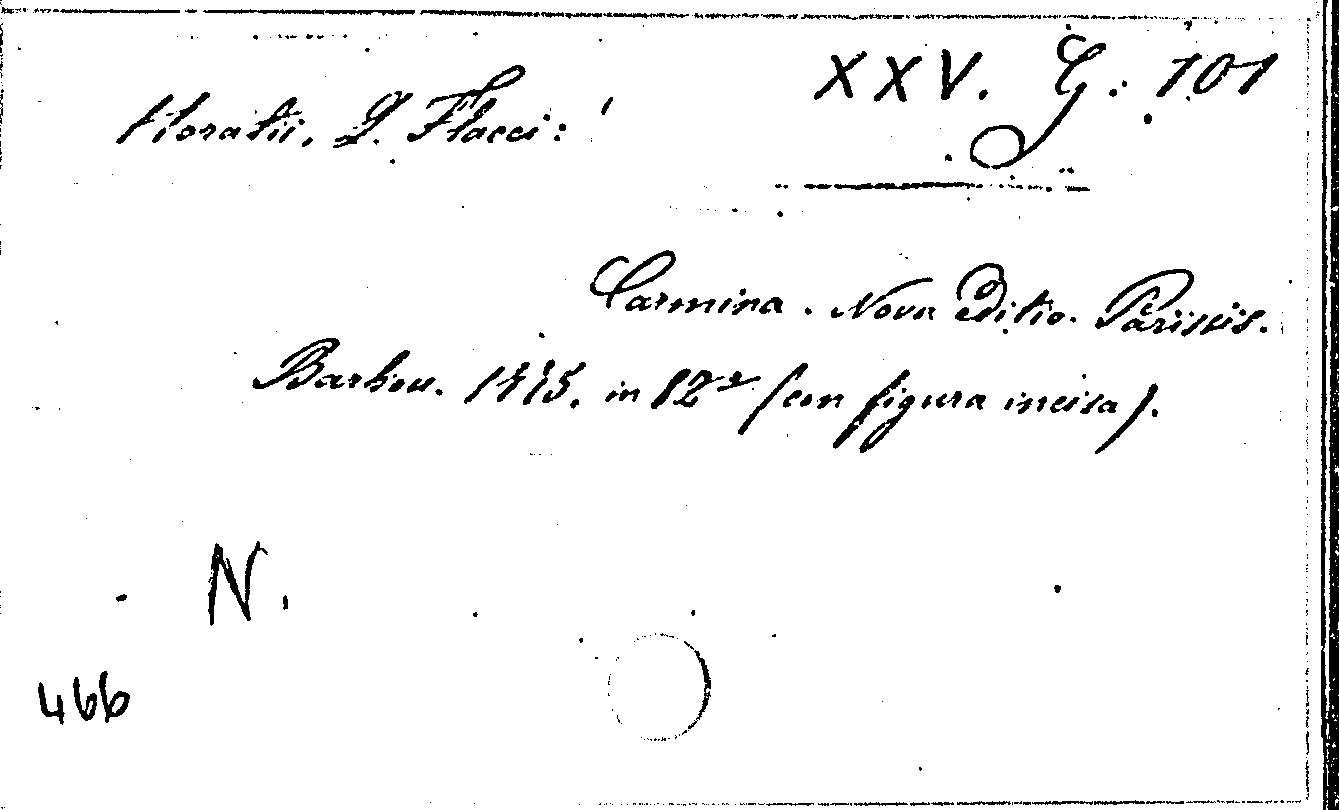 XXV. G. 101
Horatii, Q. Flacci:
Carmina. Nova Editio. Parisiis.
Barbou. 1775. in 12º (con figura incisa).
N.
466